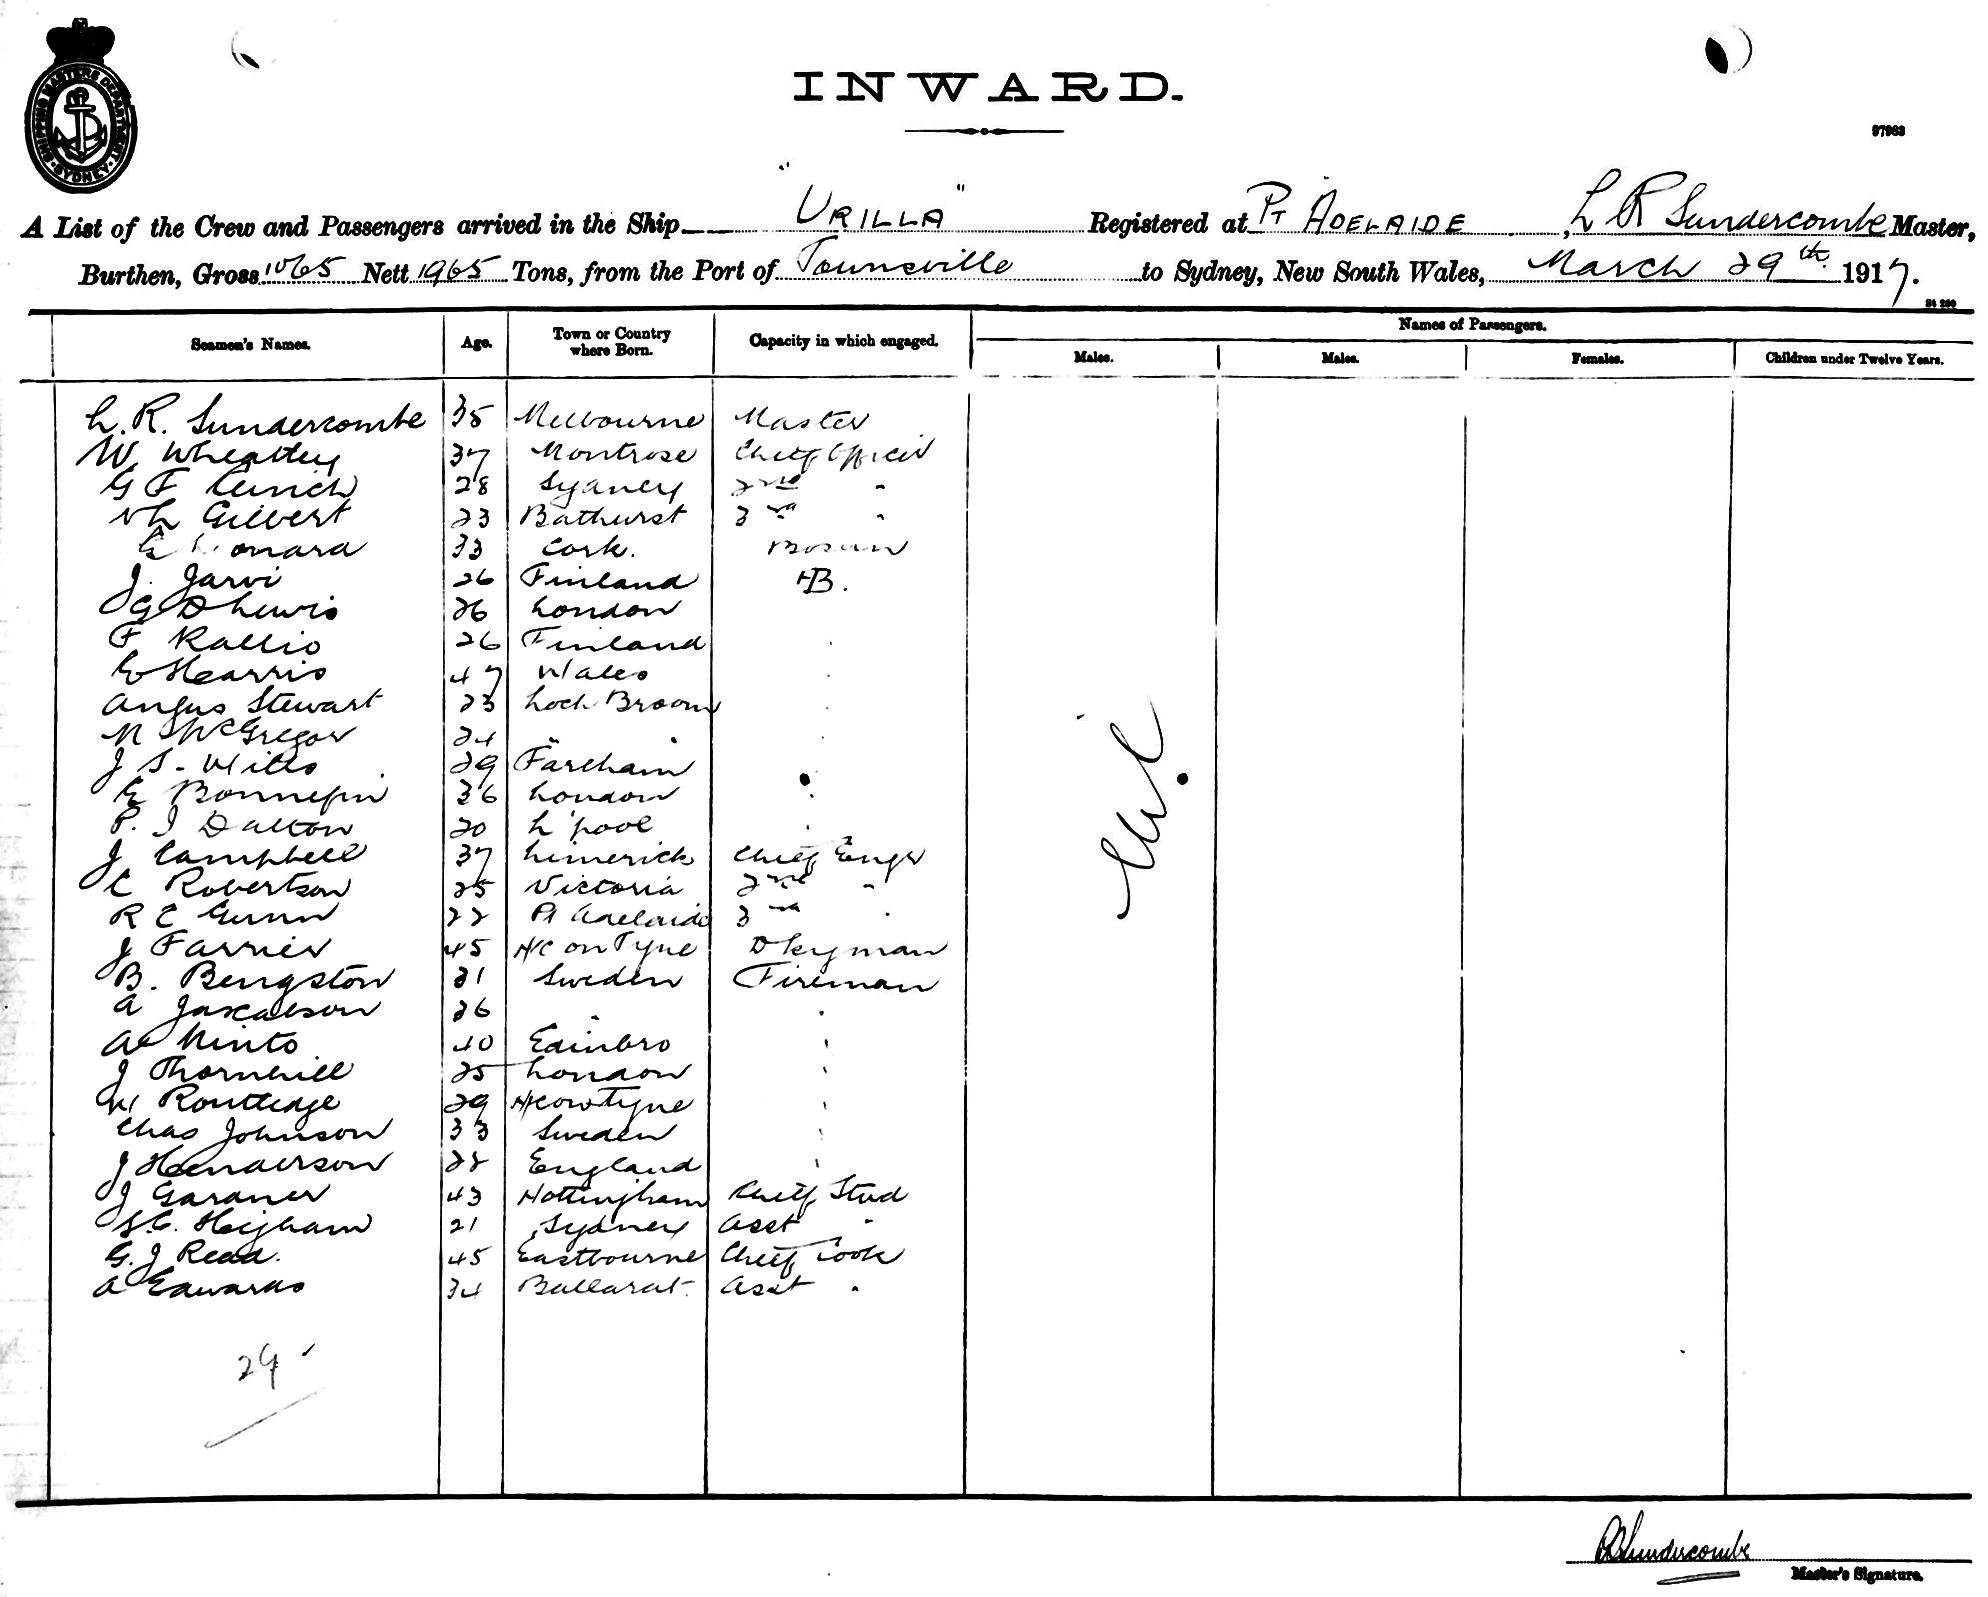 SHIPPING MASTERS DEPARTMENT · SYDNEY ·
INWARD.
97963
A List of the Crew and Passengers arrived in the Ship "URILLA" Registered at PT ADELAIDE, L R Sundercombe Master,
Burthen, Gross 1065 Nett 1965 Tons, from the Port of Townsville to Sydney, New South Wales, March 29th 1917.
Seamen's Names. Age. Town or Country where Born. Capacity in which engaged. Names of Passengers.
Males. Males. Females. Children under Twelve Years.
L. R. Sundercombe 35 Melbourne Master
W Wheatley 37 Montrose Chief Officer
G F 28 Sydney 2nd "
Gilbert 23 Bathurst 3rd "
33 Cork. Bosun
J. Jarvi 26 Finland B.
G D Lewis 26 London
F Kallio 26 Finland
E Harris 47 Wales
Angus Stewart 23 Loch Broom
N McGregor 24 " "
J S. Wills 29 Fareham
E Bonnefin 36 London
P. J Dalton 20 L'pool
J Campbell 37 Limerick Chief Engr
C Robertson 25 Victoria 2nd "
R C Gunn 22 Pt Adelaide 3rd "
J Farrier 45 N/C on Tyne Dkyman
B. Bengston 21 Sweden Fireman
A 26 "
A Minto 40 Edinbro
J Thornhill 25 London
W Routledge 29 N/C on Tyne
Chas Johnson 33 Sweden
J Henderson 22 England
J Gardner 43 Nottingham Chief Stud
S.C. Higham 21 Sydney Asst "
G. J Read. 45 Eastbourne Chief Cook
A Edwards 34 Ballarat. Asst "
Nil
29
LRSundercombe
Master's Signature.